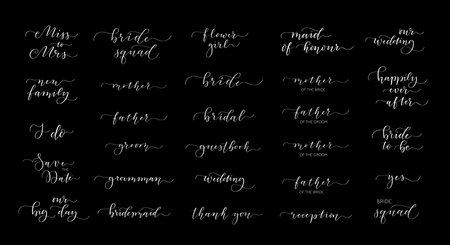 Miss
to
Mrs.
bride
squad
flower
girl
maid
of honour
our
wedding
new
family
mother
bride
mother
OF THE BRIDE
happily
ever
after
father
bridal
father
OF THE GROOM
I do
groom
guestbook
mother
OF THE GROOM
bride
to be
Save
THE
Date
groomsman
wedding
father
OF THE BRIDE
yes
our
big day
bridesmaid
thank you
reception
BRIDE
squad